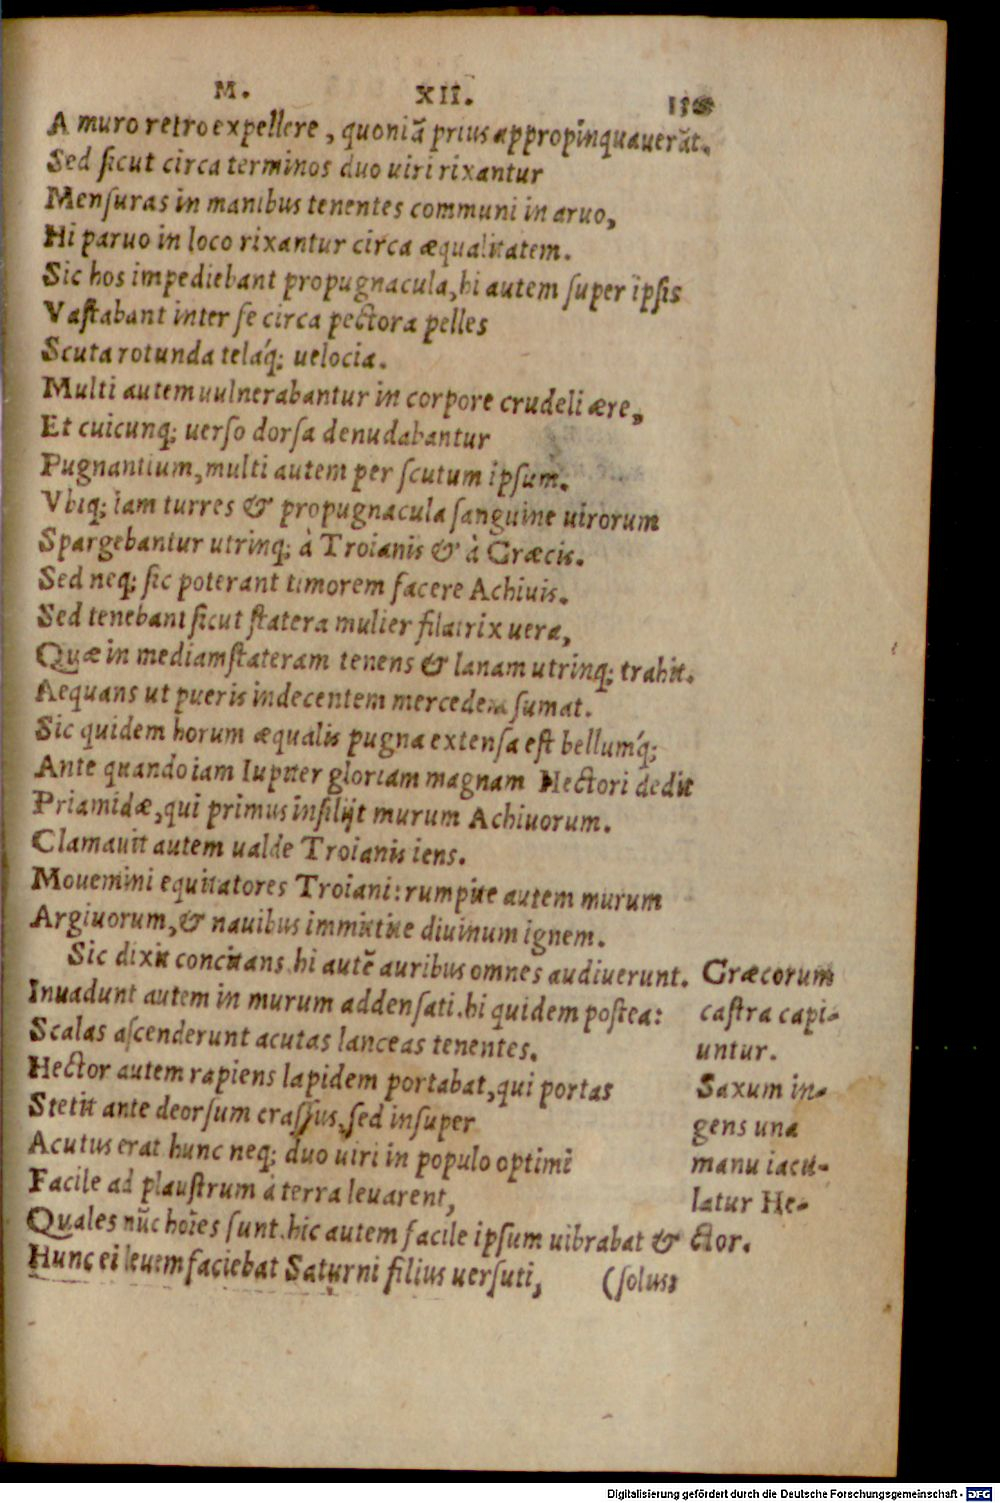 M. XII.
A muro retro expellere, quoniã prius appropinquauerãt.
Sed sicut circa terminos duo uiri rixantur
Mensuras in manibus tenentes communi in aruo,
Hi paruo in loco rixantur circa æqualitatem.
Sic hos impediebant propugnacula, hi autem super ipsis
Vastabant inter se circa pectora pelles
Scuta rotunda teláq; uelocia.
Multi autem uulnerabantur in corpore crudeli ære,
Et cuicunq; uerso dorsa denudabantur
Pugnantium, multi autem per scutum ipsum.
Vbiq; iam turres & propugnacula sanguine uirorum
Spargebantur utrinq; à Troianis & à Græcis.
Sed neq; sic poterant timorem facere Achiuis.
Sed tenebant sicut statera mulier filatrix uera,
Quæ in mediam stateram tenens & lanam utrinq; trahit.
Aequans ut pueris indecentem mercedem sumat.
Sic quidem horum æqualis pugna extensa est bellumq́;
Ante quando iam Iupiter gloriam magnam Hectori dedit
Priamidæ, qui primus insilijt murum Achiuorum.
Clamauit autem ualde Troianis iens.
Mouemini equitatores Troiani: rumpite autem murum
Argiuorum, & nauibus immittite diuinum ignem.
Sic dixit concitans. hi autẽ auribus omnes audiuerunt.
Inuadunt autem in murum addensati. hi quidem postea:
Scalas ascenderunt acutas lanceas tenentes.
Hector autem rapiens lapidem portabat, qui portas
Stetit ante deorsum crassus, sed insuper
Acutus erat hunc neq; duo uiri in populo optimi
Facile ad plaustrum à terra leuarent,
Quales nũc hoĩes sunt. hic autem facile ipsum uibrabat &
Hunc ei leuem faciebat Saturni filius uersuti, (solus:
Græcorum
castra capi-
untur.
Saxum in-
gens una
manu iacu-
latur He-
ctor.
Digitalisierung gefördert durch die Deutsche Forschungsgemeinschaft - DFG